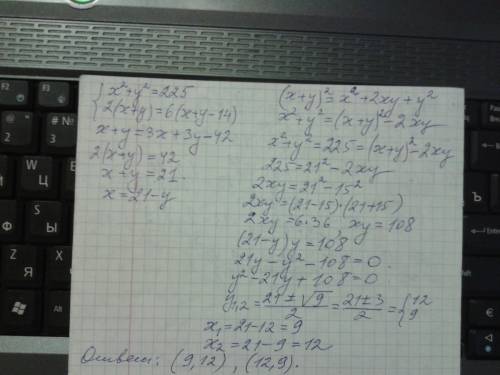 {x²+y²=225
2(x+y)=6(x+y-14)
x+y=3x+3y-42
2(x+y)=42
x+y=21.
x=21-y
(x+y)²=x²+2xy+y²
x²+y²=(x+y)²-2xy
x²+y²=225=(x+y)²-2xy
225=21²-2xy
2xy=21²-15²
2xy=(21-15)·(21+15)
2xy=6·36, xy=108
(21-y)y=108
21y-y²-108=0.
y²-21y+108=0
y1,2=(21±√9)/2=(21±3)/2={12
9
x₁=21-12=9
x₂=21-9=12
Ответ: (9,12), (12,9).
F2
2
№
3
Ц
Я
Ъ